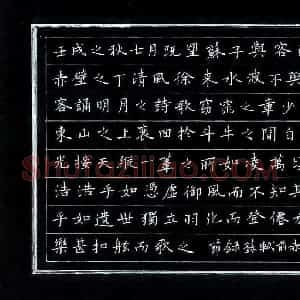 壬戌之秋七月既望蘇子與客
赤壁之下清風徐來水波不興
客誦明月之詩歌窈窕之章少
東山之上裵回於斗牛之間白
光接天縱一葦之所如凌萬
浩浩乎如憑虛御風而不知其
乎如遺世獨立羽化而登僊
樂甚扣舷而歌之 前錄蘇軾前赤
Shufaziliao.com